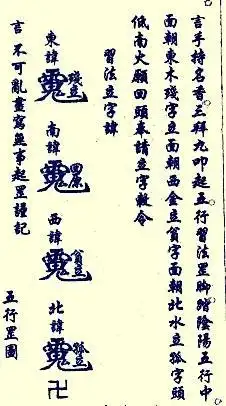 言手持名香三拜九叩起五行習法罡腳踏陰陽五行中
面朝東木殘字立面朝西金立貧字面朝北水立孤字頭
低南火願回頭奉請立字敕令
習法立字諱
東諱
殘立
南諱
西諱
貧立
北諱
孤立
卍
言 不可亂畫無事起罡謹記
五行罡圖